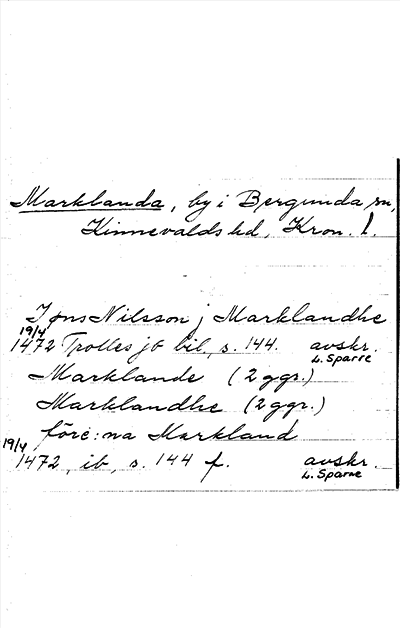 Marklanda, by i Bergunda sn,
Kinnevalds hd, Kron. l.
Jøns Nilsson j Marklandhe
19/4
1472 Trolles jb bil, s. 144. avskr.
L. Sparre
Marklande (2 ggr.)
Marklandhe (2 ggr.)
före:na Markland
19/4
1472, ib, s. 144 f. avskr.
L. Sparre